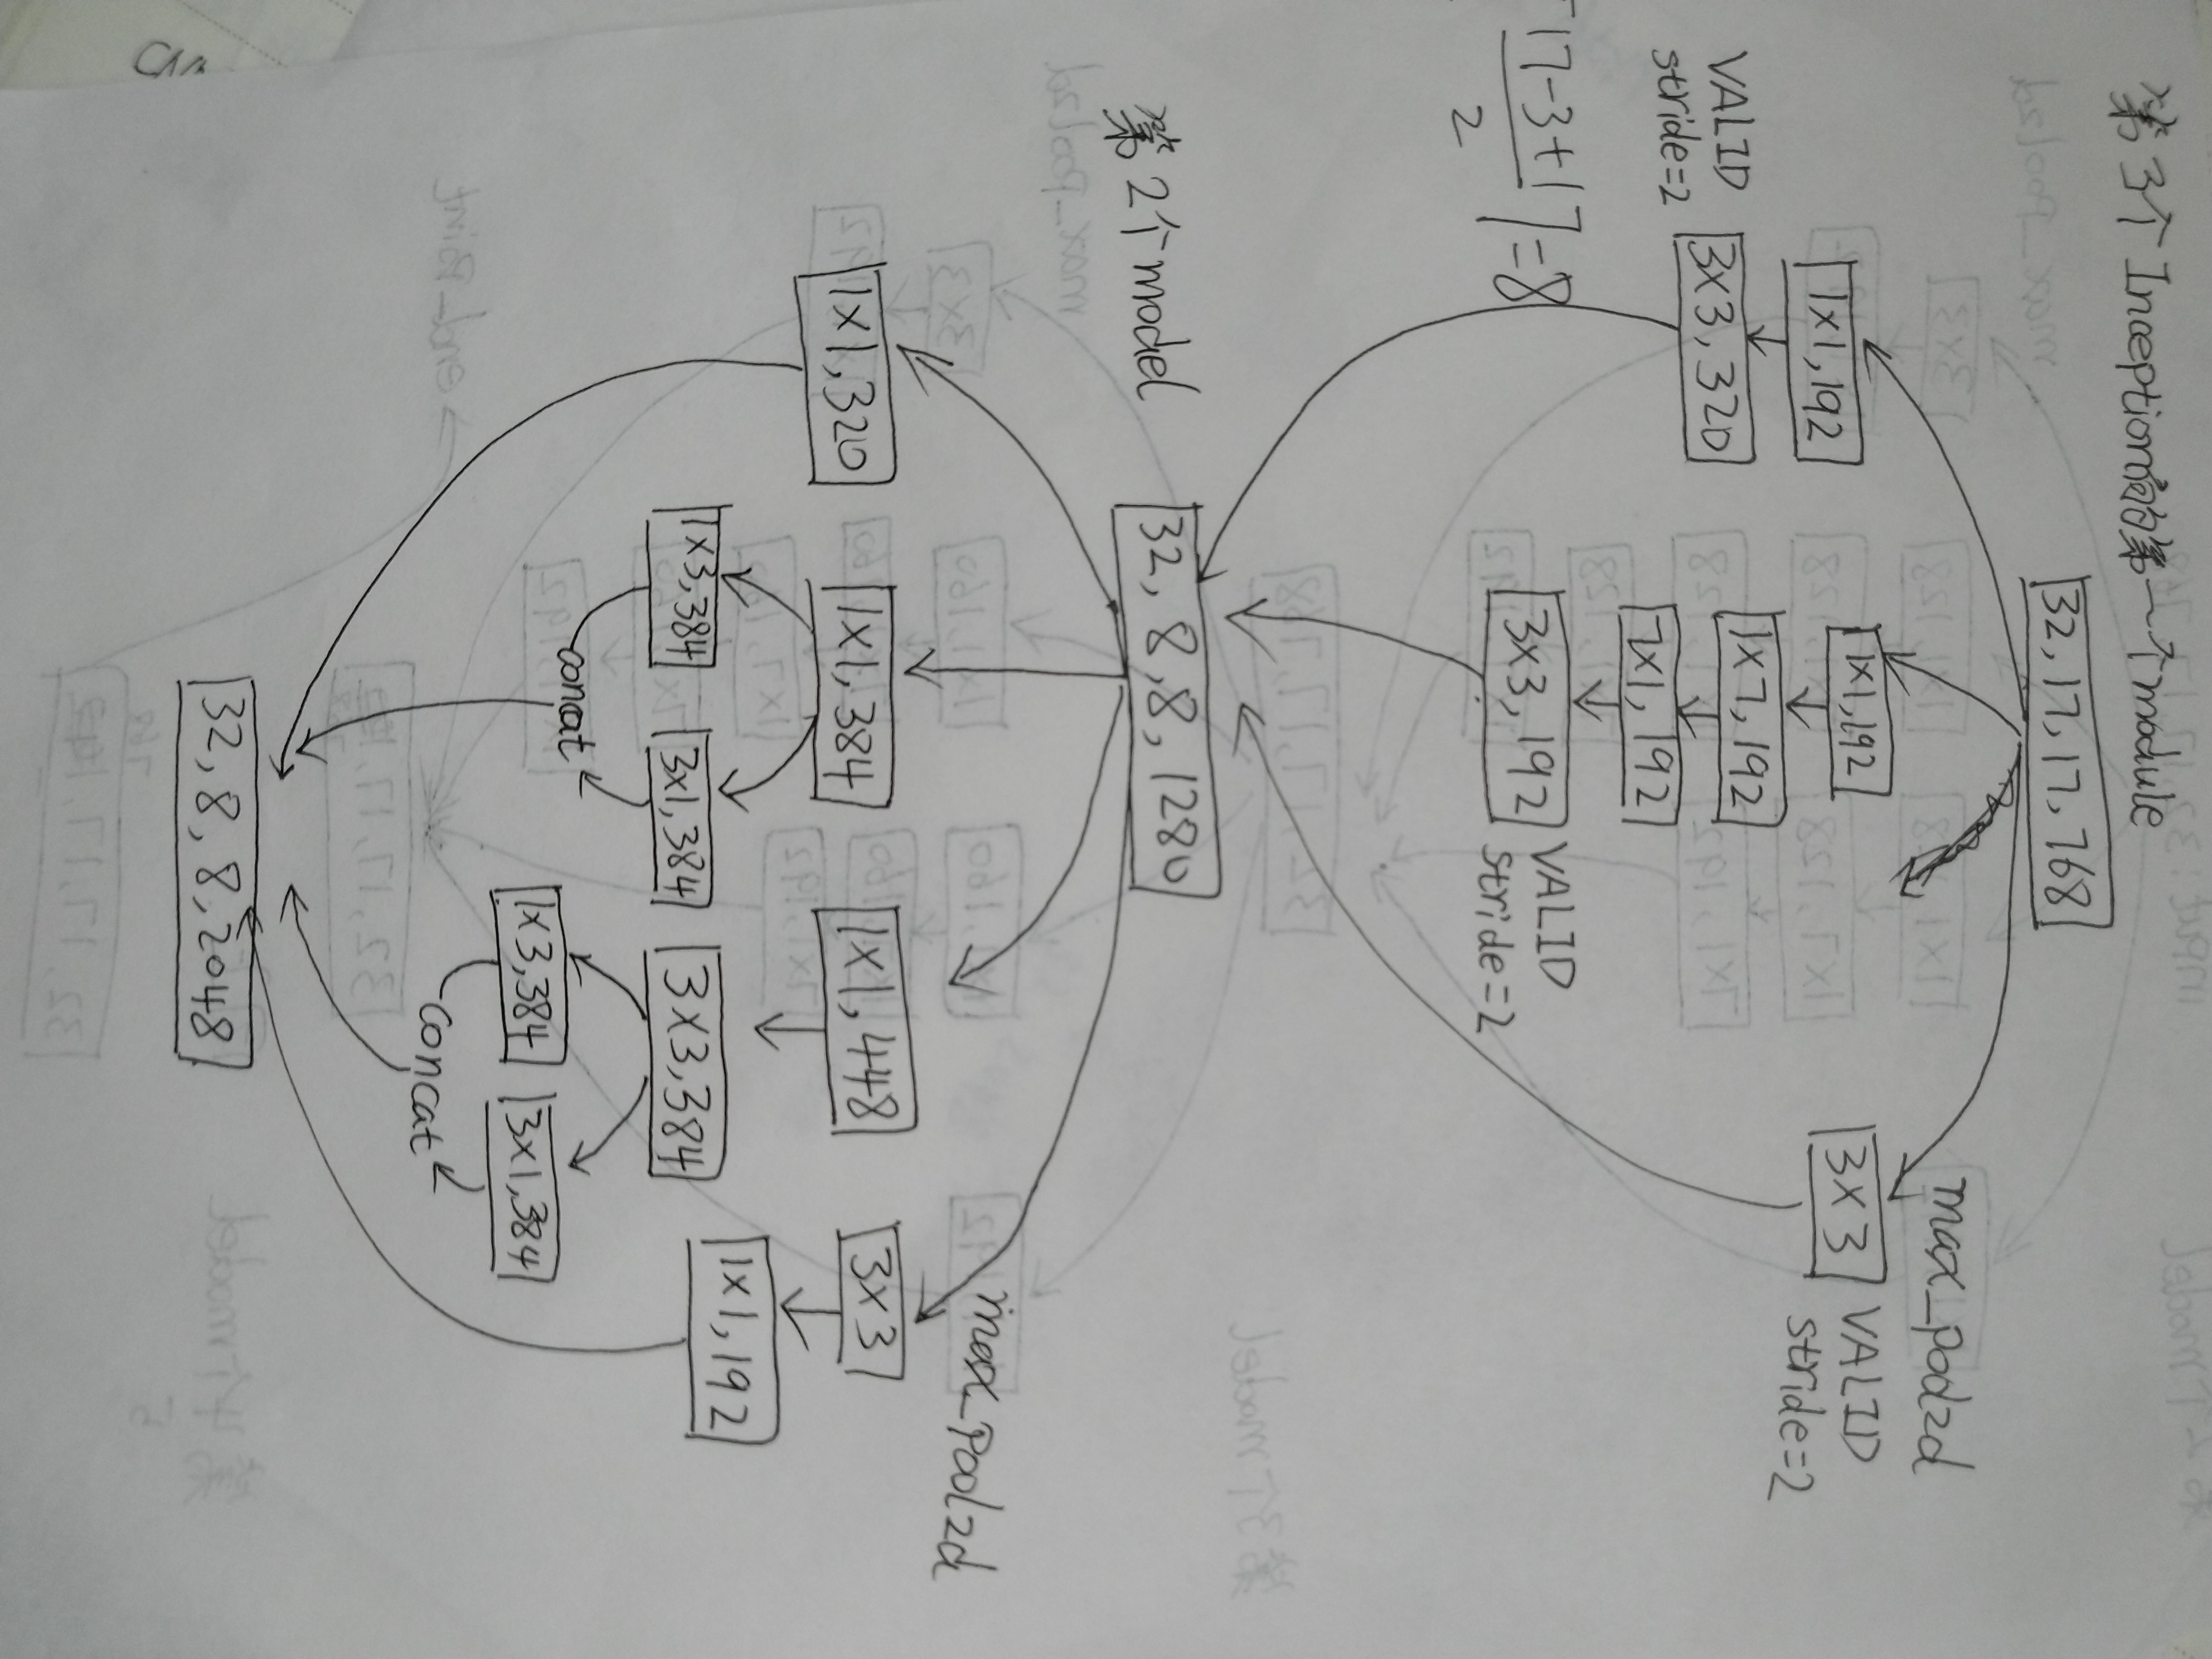 第3个Inception的第一个module
32,17,17,768
1x1,192
1x1,192
max_pool2d
3x3
VALID
stride=2
VALID
stride=2
3x3,320
1x7,192
7x1,192
3x3,192
VALID
stride=2
⌈17-3+1⌉=8
2
32,8,8,1280
第2个model
1x1,320
1x1,384
1x1,448
max_pool2d
3x3
1x3,384
3x1,384
3x3,384
1x1,192
concat
1x3,384
3x1,384
concat
32,8,8,2048